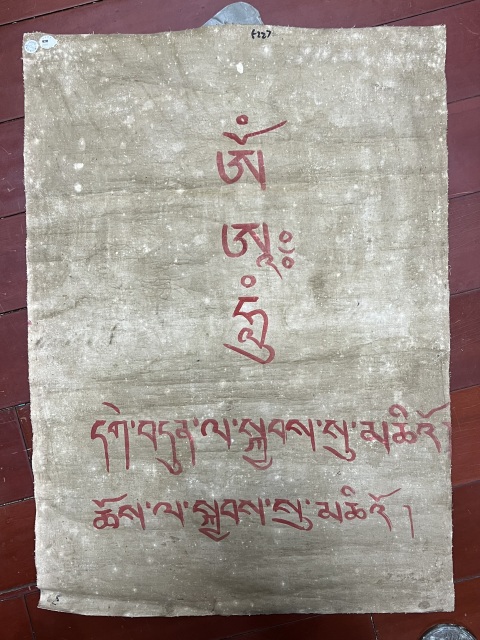 ཨོཾ
ཨཱཿ
ཧཱུྃ
དགེ་བདུན་ལ་སྐྱབས་སུ་མཆིའོ།
ཆོས་ལ་སྐྱབས་སུ་མཆིའོ།